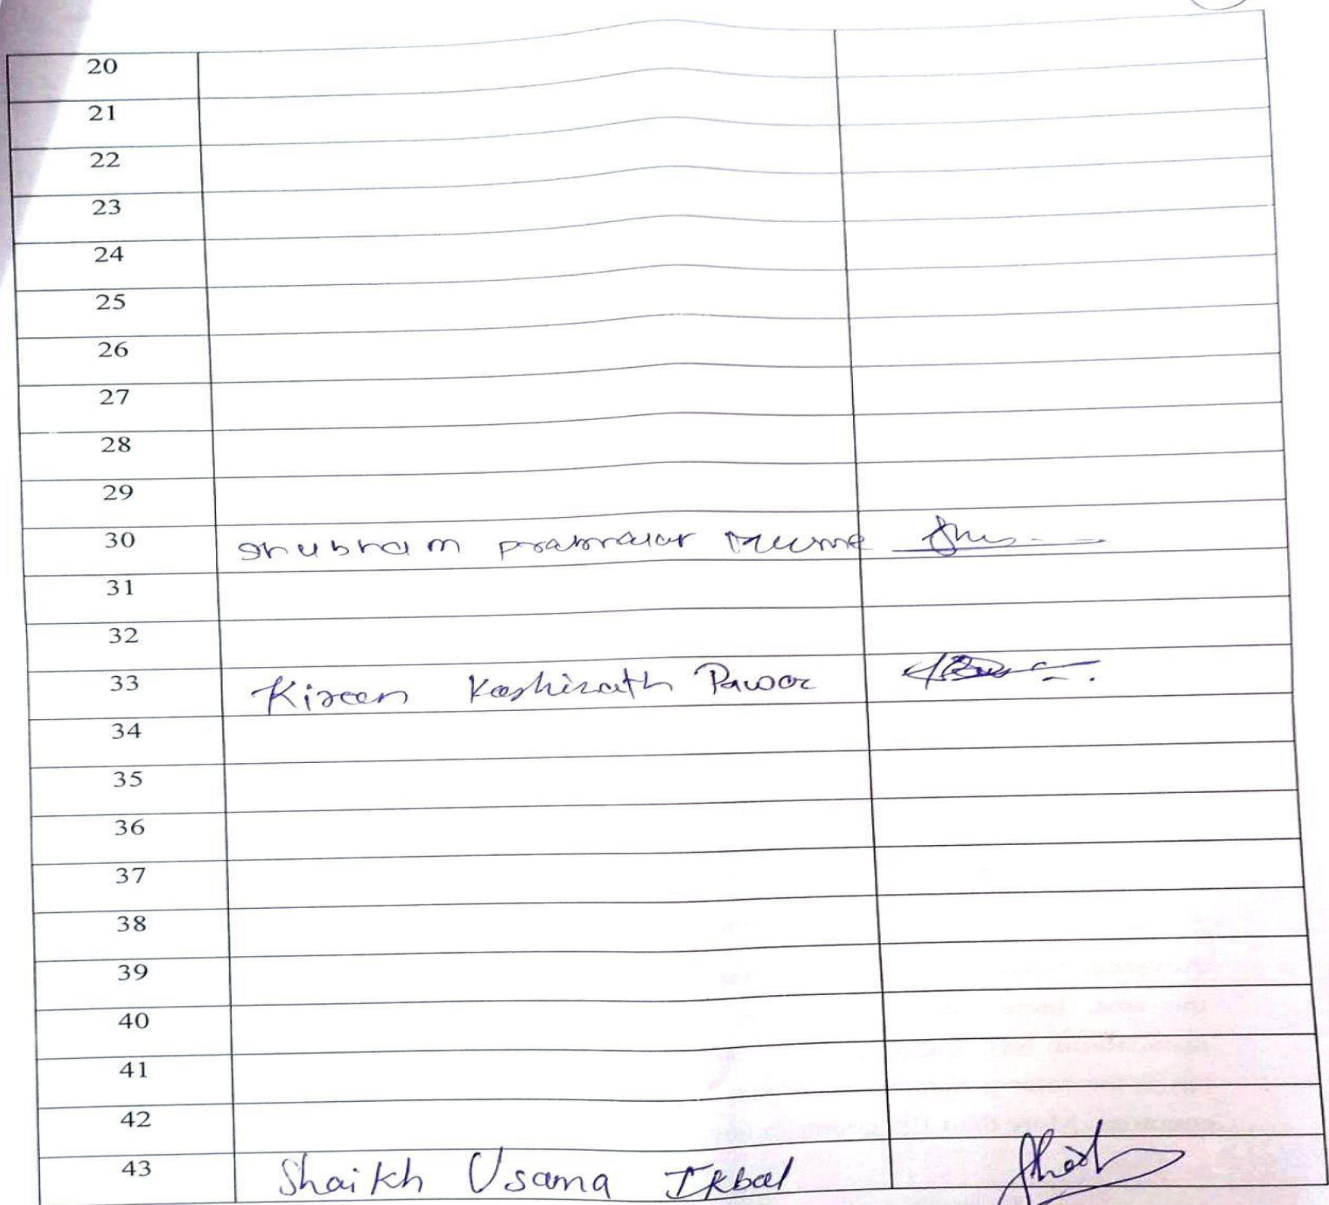 20
21
22
23
24
25
26
27
28
29
30 Shubham
31
32
33 Kiran Kashinath Pawar
34
35
36
37
38
39
40
41
42
43 Shaikh Usama Ikbal